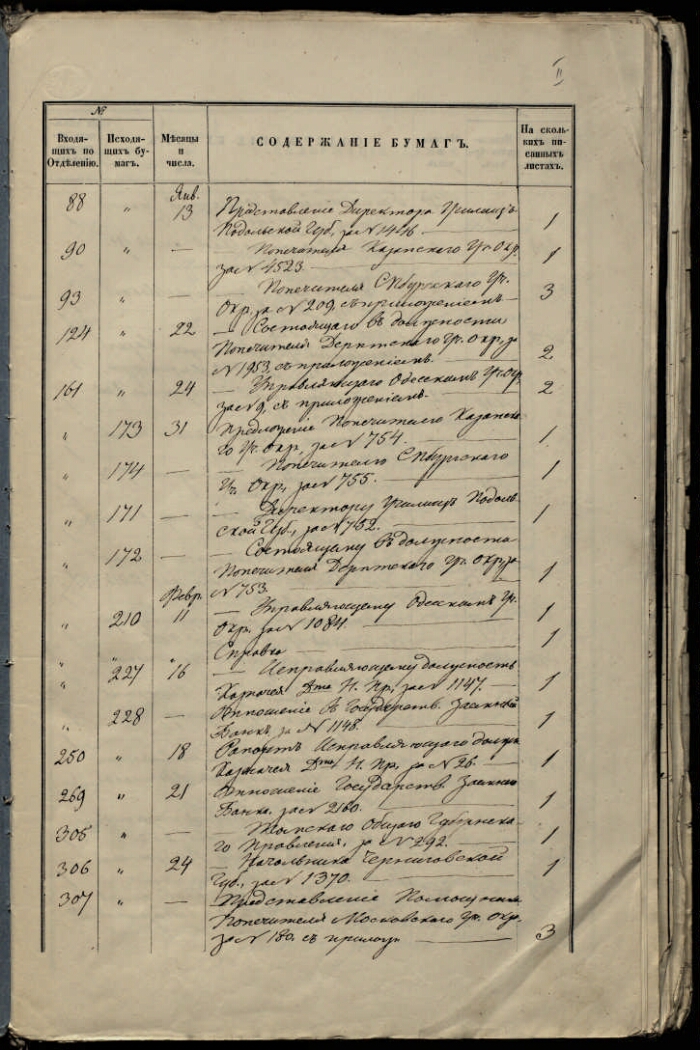 II
№
Входя-
щихъ по
Отдѣленію.
Исходя-
щихъ бу-
магъ.
Мѣсяцы
и
числа.
СОДЕРЖАНІЕ БУМАГЪ.
На сколь-
кихъ пи-
санныхъ
листахъ.
Янв.
88 " 13 Представленіе Директора Училищъ
Подольской Губ., за № 1416. 1
90 " — — Попечителя Казанскаго Уч. Окр.
за № 4523. — 1
93 " — — Попечителя СПбургскаго Уч.
Окр. за № 209, съ приложеніемъ — 3
124 " 22 — Состоящаго въ должности
Попечителя Дерптскаго Уч. Окр., за
№ 1953, съ приложеніемъ. — 2
161 " 24 — Управляющаго Одесскимъ Уч. Окр.
за № 9, съ приложеніемъ. — 2
" 173 31 Предложеніе Попечителю Казанска-
го Уч. Окр., за № 754. — 1
" 174 — — Попечителю СПбургскаго
Уч. Окр., за № 755. — 1
" 171 — — Директору Училищъ Подоль-
ской Губ., за № 752. — 1
" 172 — — Состоящему въ должности
Попечителя Дерптскаго Уч. Окр., за
№ 753. — 1
Февр.
" 210 11 — Управляющему Одесскимъ Уч.
Окр. за № 1084. — 1
" " " Справка — 1
" 227 16 — Исправляющему должность
Казначея Д-та Н. Пр., за № 1147. — 1
" 228 — Отношеніе въ Государств. Заемный
Банкъ, за № 1148. — 1
250 " 18 Рапортъ Исправляющаго должн.
Казначея Д-та Н. Пр., за № 26. 1
269 " 21 Отношеніе Государств. Заемнаго
Банка, за № 2160. — 1
305 " — — Томскаго Общаго Губернска-
го Правленія, за № 292. — 1
306 " 24 — Начальника Черниговской
Губ., за № 1370. — 1
307 " — Представленіе Помощника
Попечителя Московскаго Уч. Окр.
за № 180, съ прилож. — 3